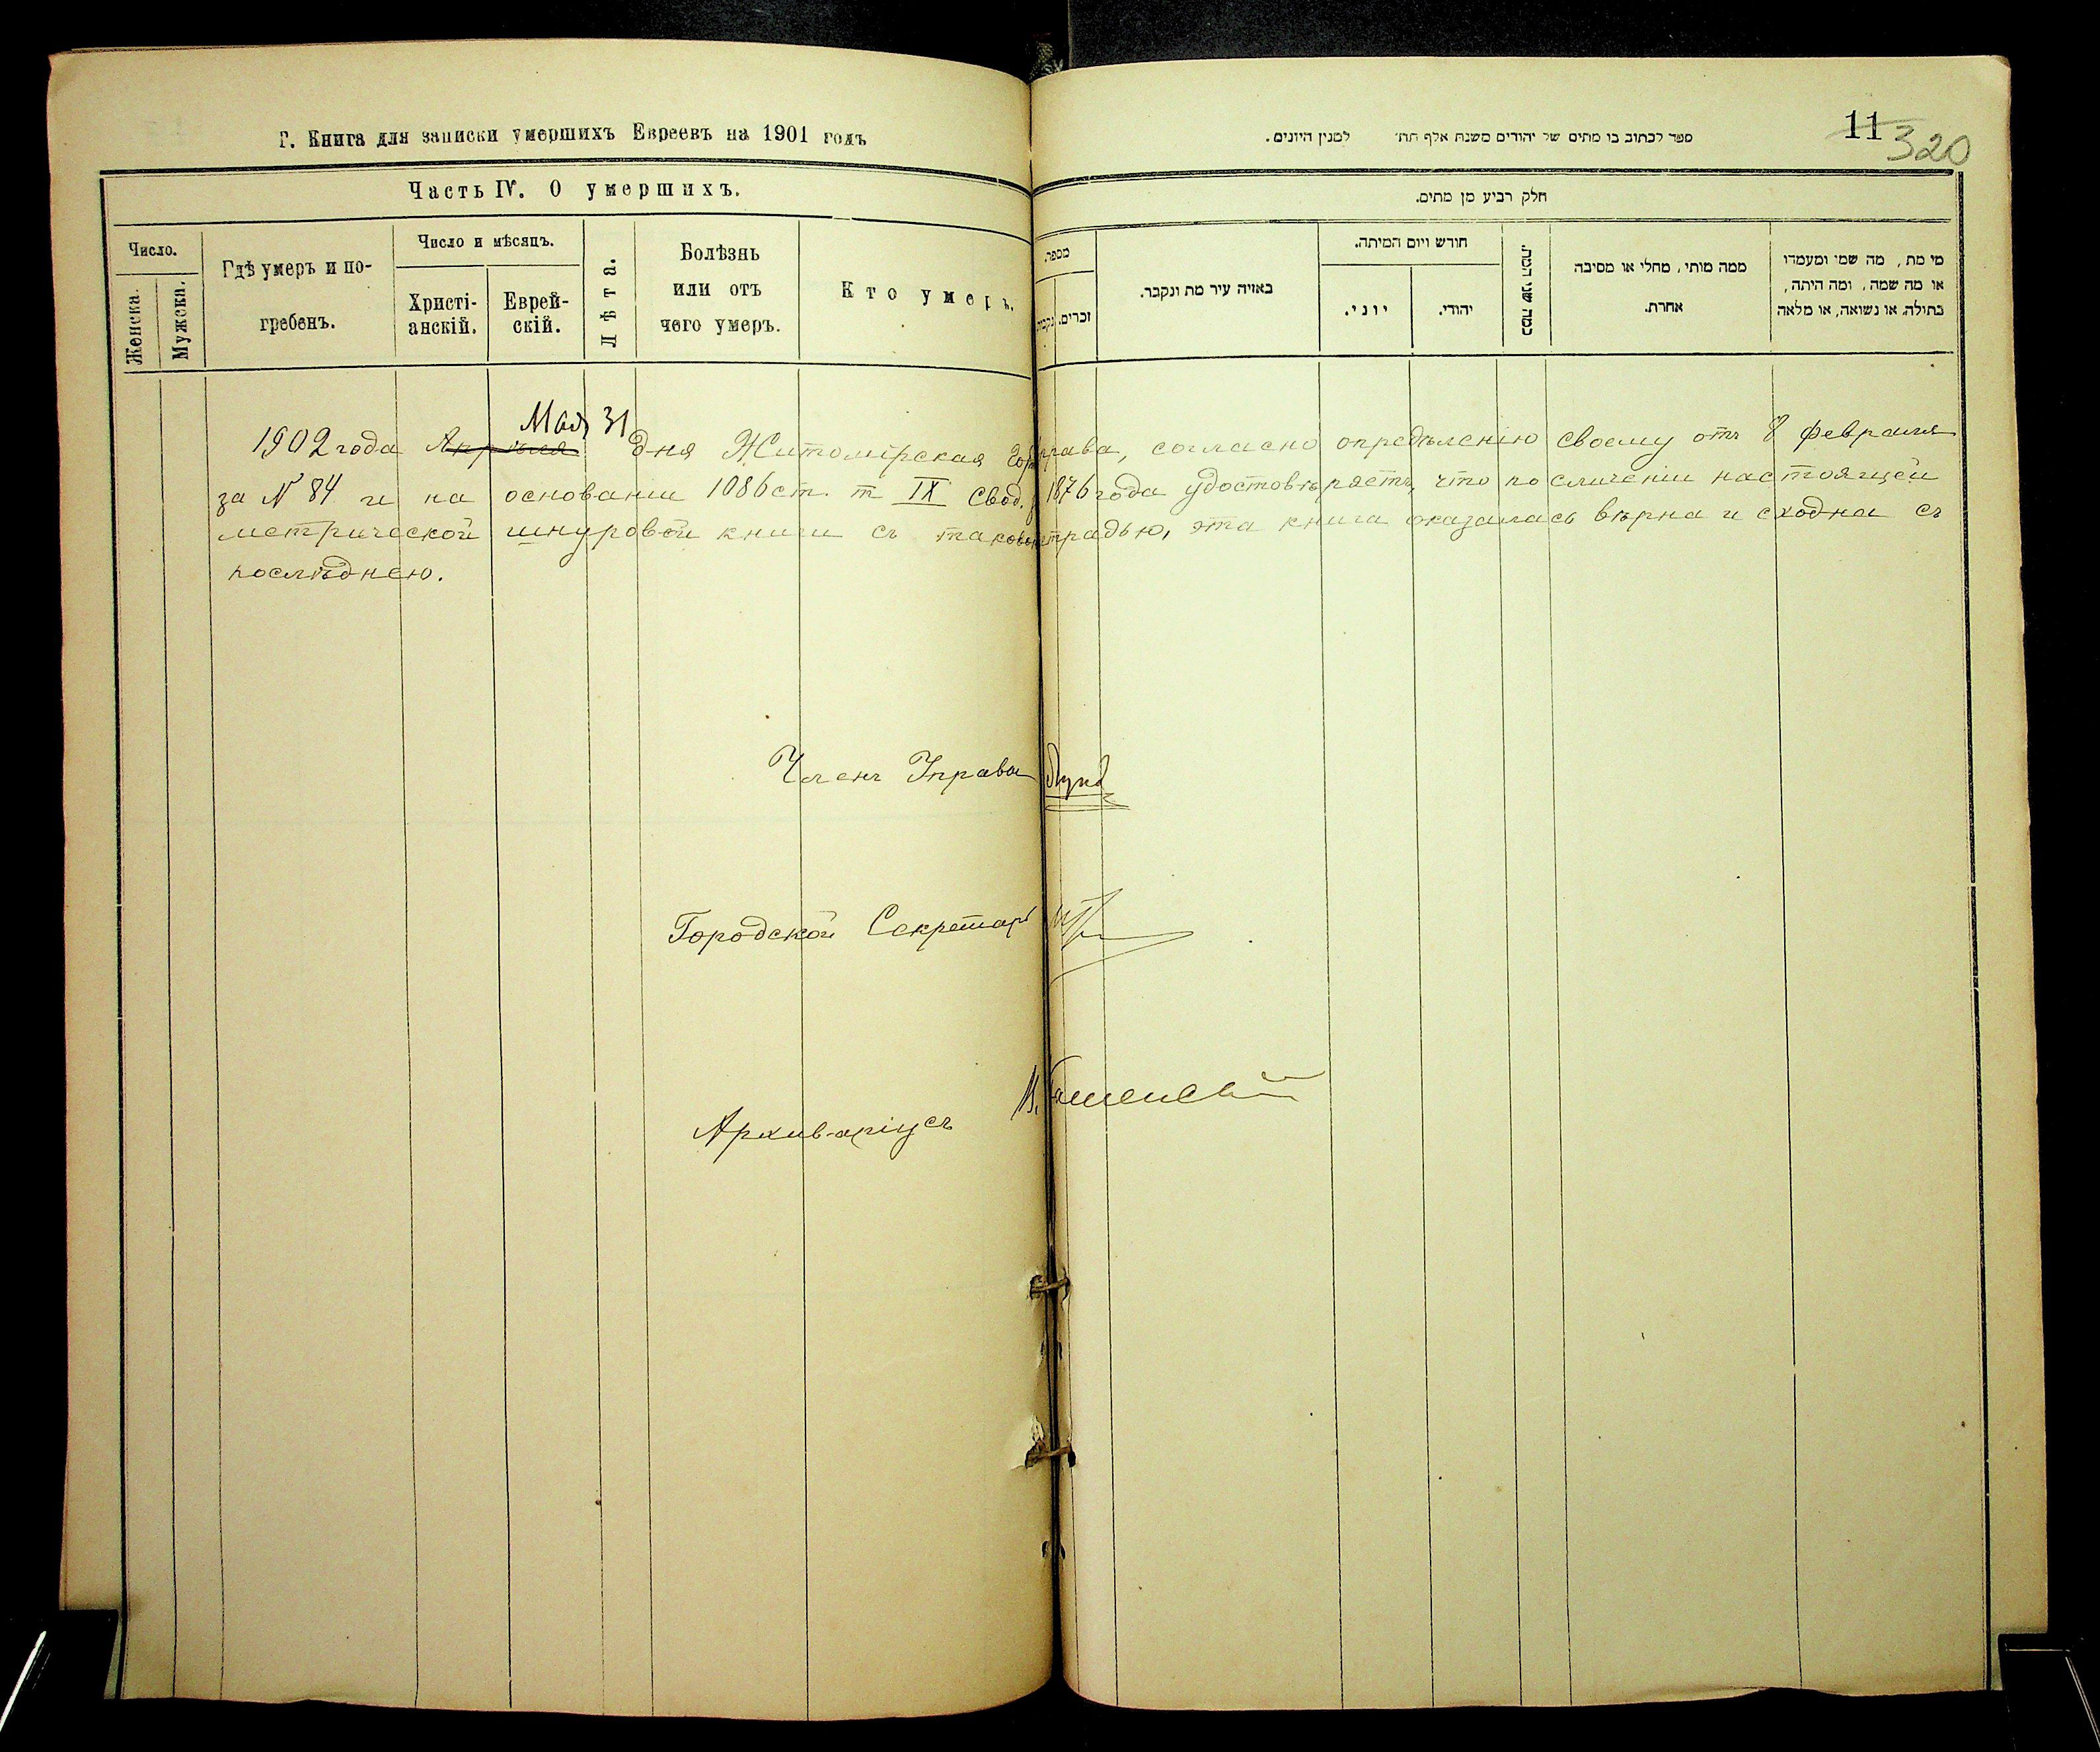 Г. Книга для записки умершихъ Евреевъ на 1901 годъ
Часть IV. О умершихъ.
Число.
Женска.
Мужеска.
Гдѣ умеръ и по-
гребенъ.
Число и мѣсяцъ.
Христі-
анскій.
Еврей-
скій.
Лѣта.
Болѣзнь
или отъ
чего умеръ.
Кто умеръ.
11
320
ספר לכתוב בו מתים של יהודים משנת אלף תת׳ למנין היונים.
חלק רביע מן מתים.
מספר.
זכרים.
באיזה עיר מת ונקבר.
חודש ויום המיתה.
יוני.
יהודי.
כמה שני המת.
ממה מותי, מחלי או מסיבה
אחרת.
מי מת, מה שמי ומעמדו
או מה שמה, ומה היתה,
בתולה, או נשואה, או מלאה
Мая 31
1902 года Апрѣля дня Житомірская права, согласно опредѣленію своему отъ 8 февраля
за N 84 и на основаніи 1086 ст. т IX Свод. 1876 года удостовѣряетъ, что по сличеніи настоящей
метрической шнуровой книги съ таковою тетрадью, эта книга оказалась вѣрна и сходна съ
послѣднею.
Членъ Управы
Городской Секретарь
Архиваріусъ